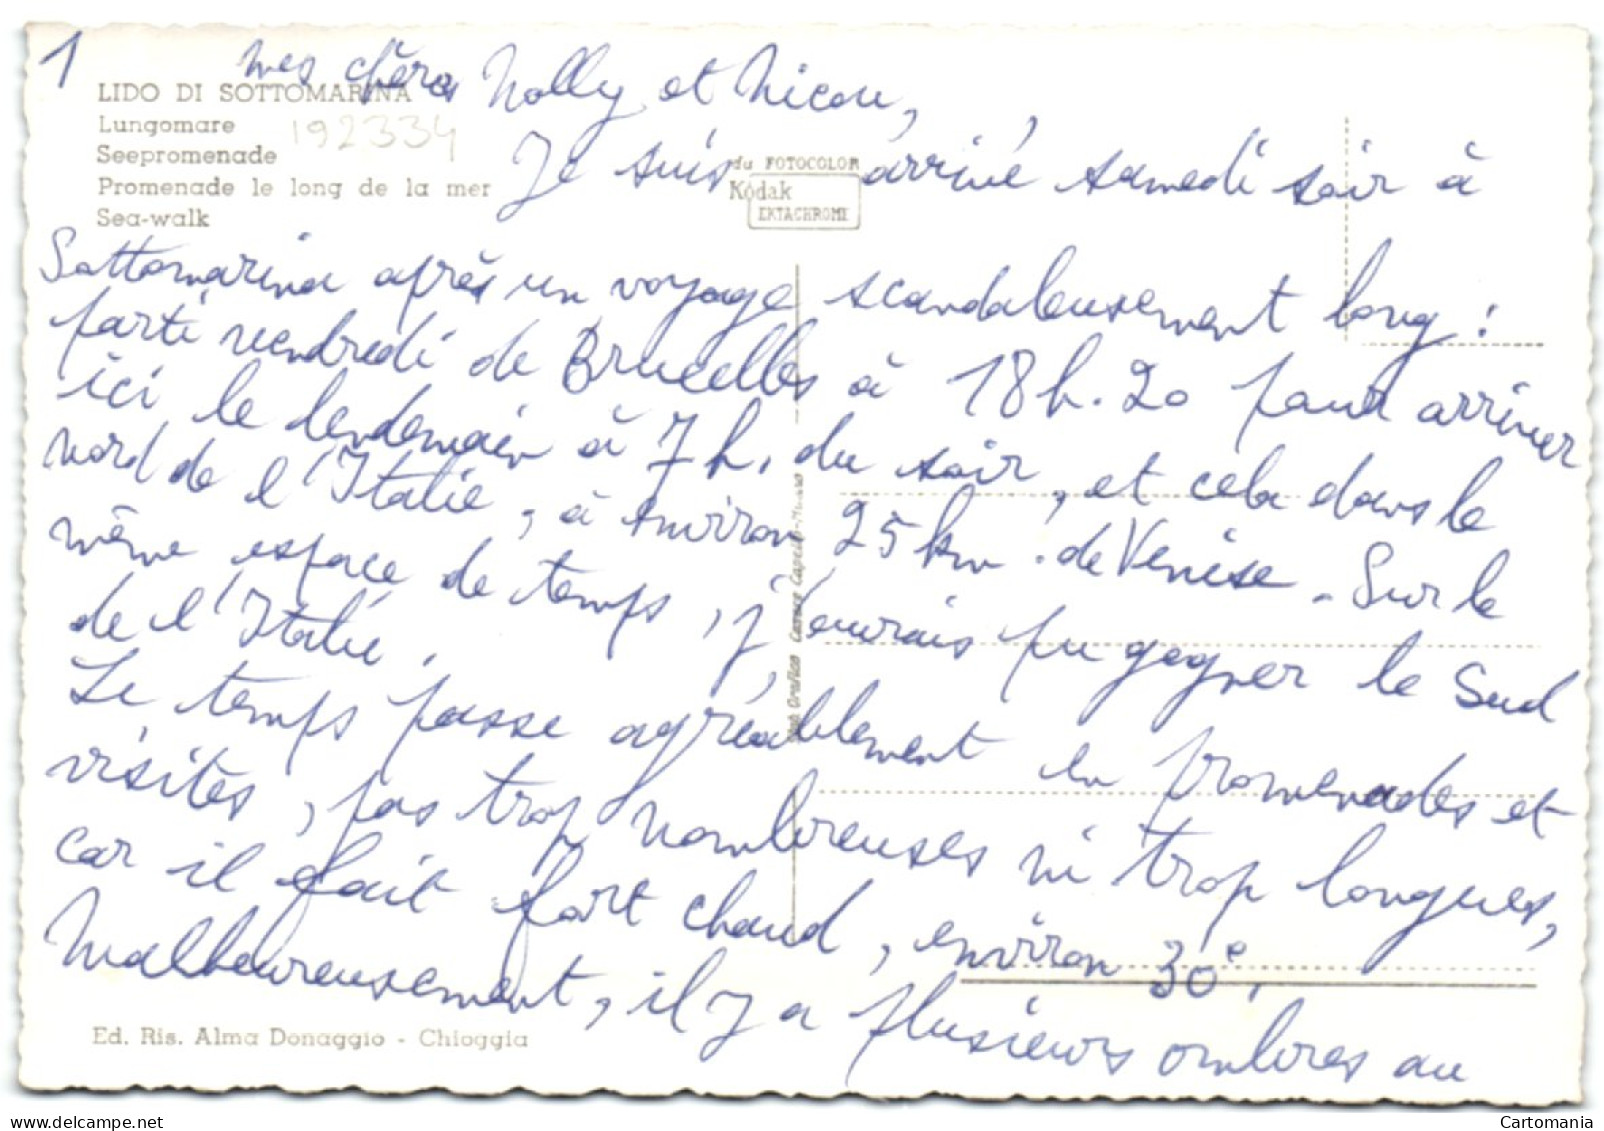 1
mes chères Nolly et Nicou,
LIDO DI SOTTOMARINA
Lungomare
192334
Seepromenade
Promenade le long de la mer
Sea-walk
du FOTOCOLOR
Kodak
EKTACHROME
Je suis arrivé samedi soir à
Sottomarina après un voyage scandaleusement long :
parti vendredi de Bruxelles à 18h.20 pour arriver
ici le lendemain à 7h. du soir, et cela dans le
nord de l'Italie, à environ 25 km. de Venise. Sur le
même espace de temps, j'aurais pu gagner le Sud
de l'Italie.
Le temps passe agréablement en promenades et
visites, pas trop nombreuses ni trop longues,
car il fait fort chaud, environ 30°.
Malheureusement, il y a plusieurs ombres au
Ed. Ris. Alma Donaggio - Chioggia
Cartomania